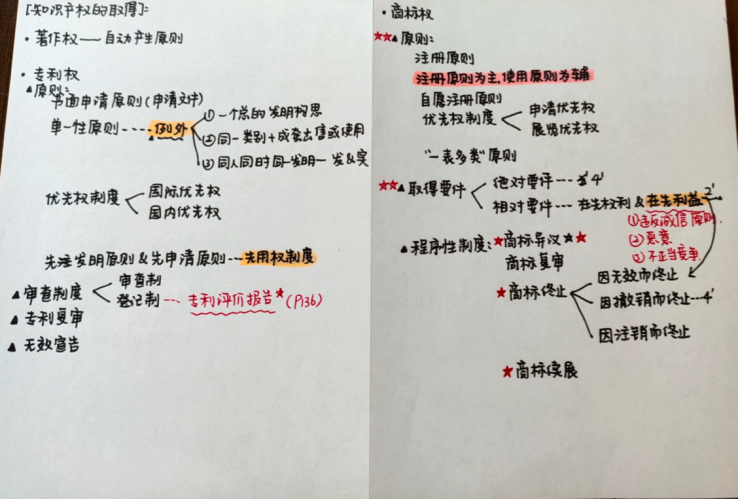 [知识产权的取得]:
·著作权——自动产生原则
·专利权
▲原则:
书面申请原则(申请文件)
单一性原则----例外
①一个总的发明构思
②同一类别+成套出售或使用
③同人同时同一发明一发&实
优先权制度
国际优先权
国内优先权
先注发明原则&先申请原则---先用权制度
▲审查制度
审查制
登记制---专利评价报告★(P136)
▲专利复审
▲无效宣告
·商标权
★★▲原则:
注册原则
注册原则为主,使用原则为辅
自愿注册原则
优先权制度
申请优先权
展览优先权
"一表多类"原则
★★▲取得要件
绝对要件---4'
相对要件---在先权利&在先利益2'
①违反诚信原则.
②恶意
③不正当竞争
▲程序性制度:★商标异议★★
商标复审
★商标终止
因无效而终止
因撤销而终止--4'
因注销而终止
★商标续展